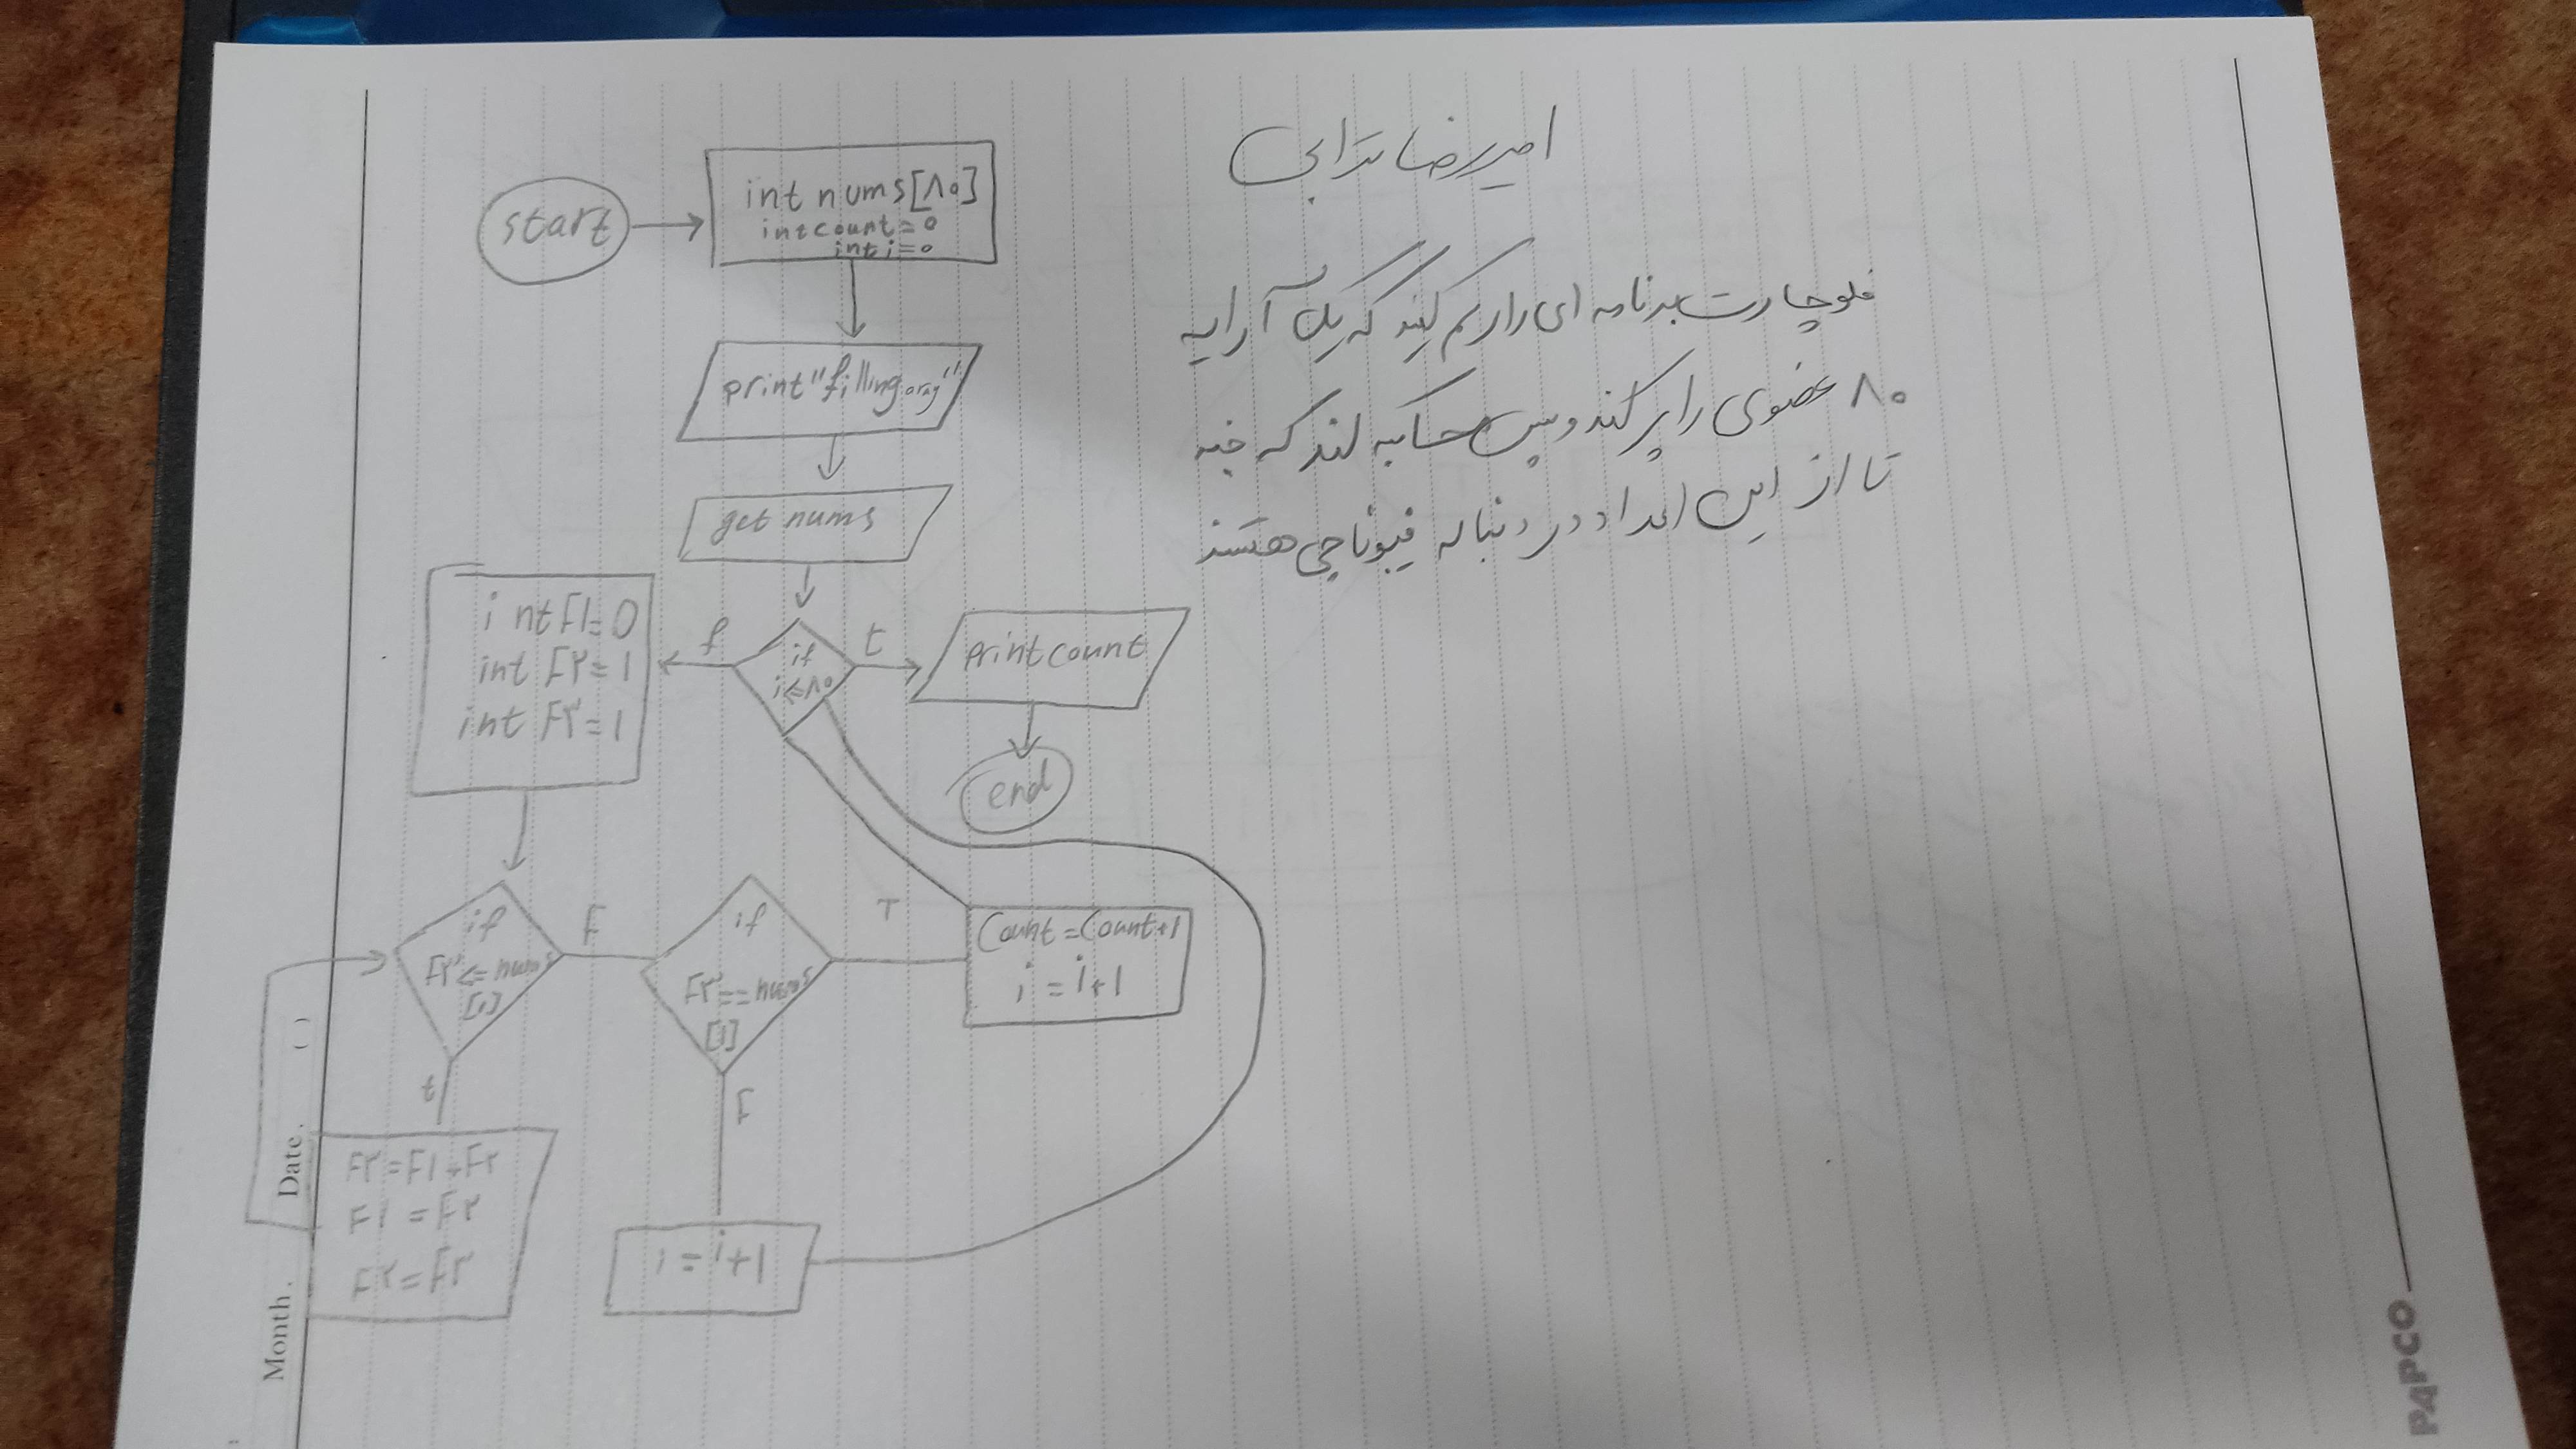 امیررضا ترابی
فلوچارت برنامه ای را رسم کنید که یک آرایه
۸۰ عضوی را پر کند و سپس محاسبه کند که چند
تا از این اعداد در دنباله فیبوناچی هستند
start
int nums[۸۰]
int count=0
int i=0
print "filling array"
get nums
if
i<=۸۰
f
t
print count
end
int F1=0
int F۲=1
int F۳=1
if
F۳<=nums
[i]
F
t
if
F۳==nums
[i]
T
F
Count=Count+1
i=i+1
F۳=F1+F۲
F1=F۲
F۲=F۳
i=i+1
Date. ( )
Month.
P4PCO